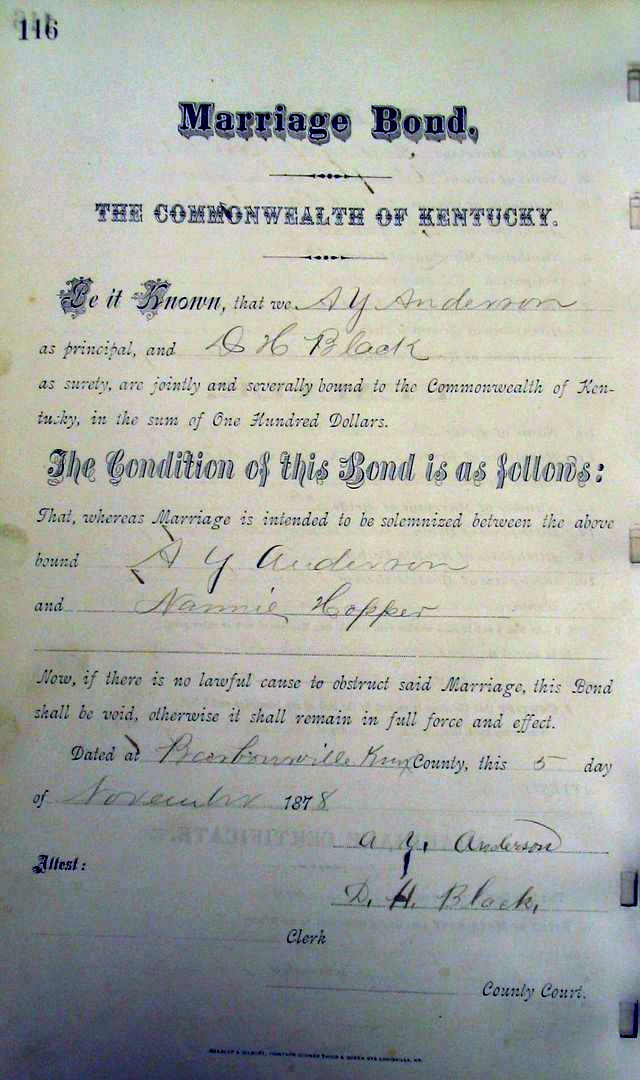 116
Marriage Bond,
THE COMMONWEALTH OF KENTUCKY.
Be it Known, that we A Y Anderson
as principal, and D H Black
as surety, are jointly and severally bound to the Commonwealth of Ken-
tucky, in the sum of One Hundred Dollars.
The Condition of this Bond is as follows:
That, whereas Marriage is intended to be solemnized between the above
bound A Y Anderson
and Nannie Hopper
Now, if there is no lawful cause to obstruct said Marriage, this Bond
shall be void, otherwise it shall remain in full force and effect.
Dated at Barbourville Knox County, this 5 day
of November 1878
A. Y. Anderson
Attest:
D. H. Black.
Clerk
County Court.